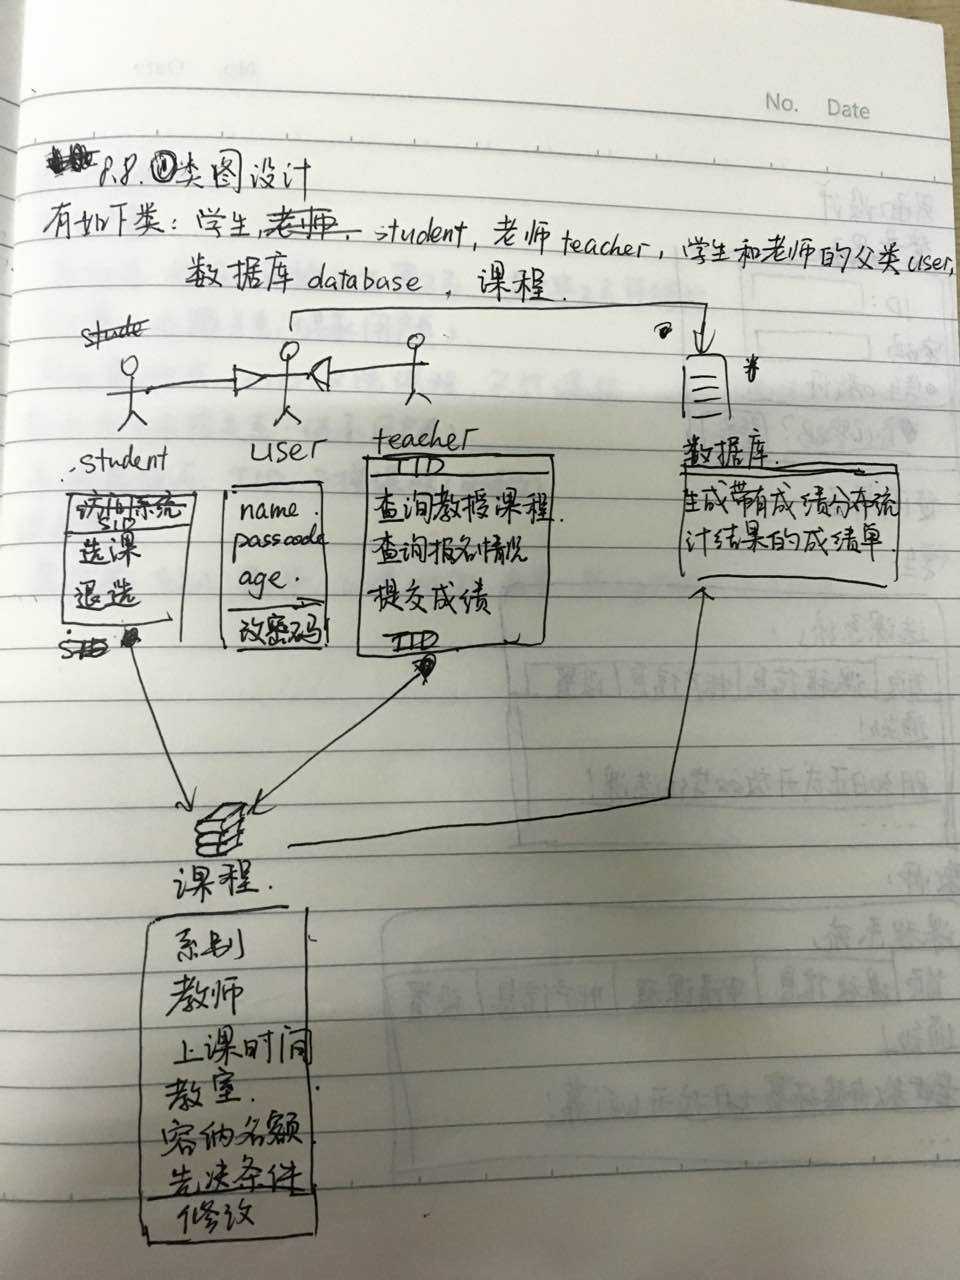 No. Date
8.8. ① 类图设计
有如下类: 学生, 老师. student, 老师 teacher, 学生和老师的父类 user,
数据库 database, 课程.
stude
student
user
teacher
数据库.
访问系统
SID
选课
退选
SID
name.
passcode
age.
改密码
TID
查询教授课程.
查询报名情况
提交成绩
TID
生成带有成绩分布统
计结果的成绩单.
课程.
系别
教师
上课时间
教室.
容纳名额
先决条件
修改